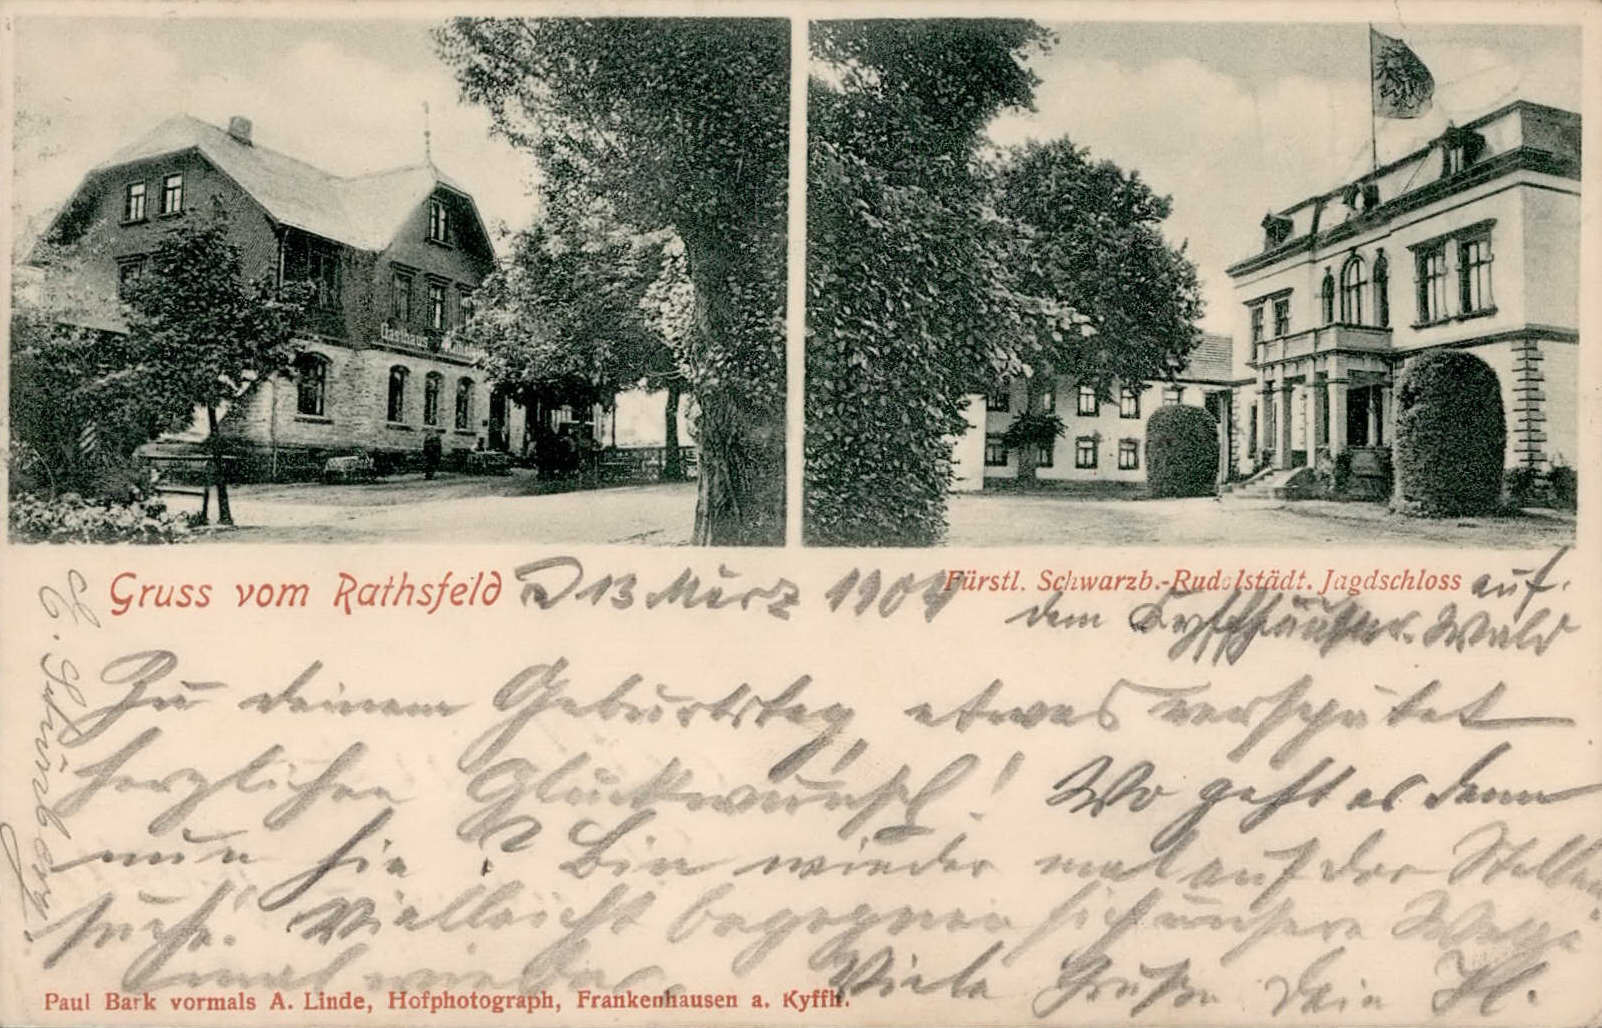 Gasthaus
Gruss vom Rathsfeld
D 13 März 1904
Fürstl. Schwarzb.-Rudolstädt. Jagdschloss
auf
dem Kyffhäuser Wald
Zu deinem Geburtstag, etwas verspätet
herzlichen Glückwunsch! Wo geht es denn
nun hin? Bin wieder mal auf der Stellen
suche! Vielleicht begegnen sich unsere Wege
mal wieder. Viele Grüße Dein
Paul Bark vormals A. Linde, Hofphotograph, Frankenhausen a. Kyffh.